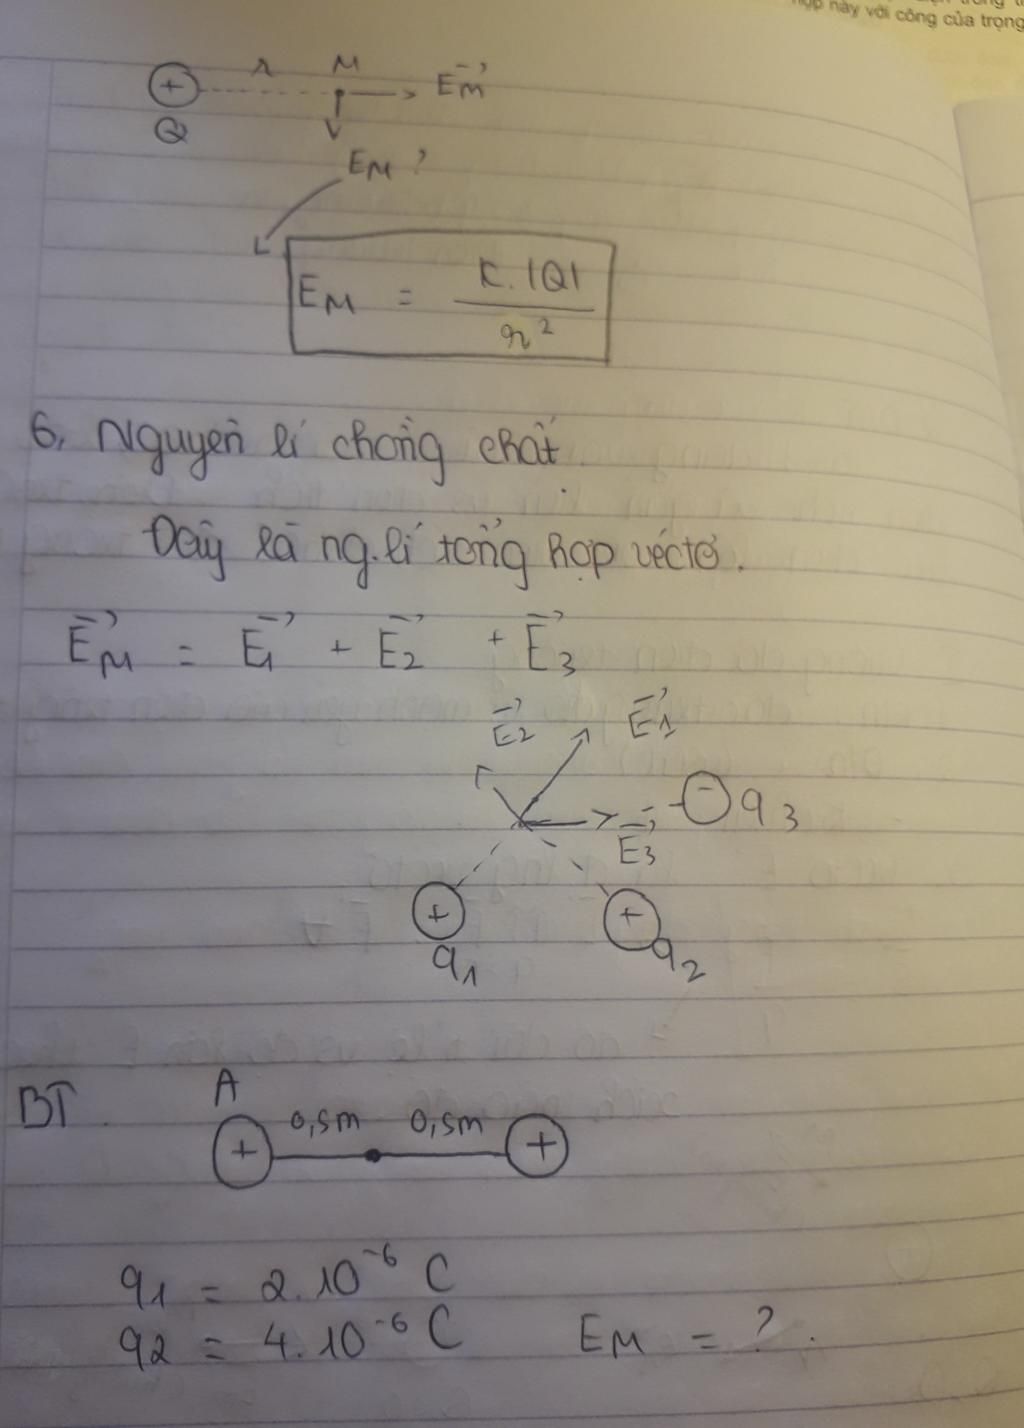 hợp này với công của trọng
r M E⃗M
+
Q
EM ?
EM = K.|Q| / r²
6, Nguyên lí chồng chất.
Đây là ng.lí tổng hợp véctơ.
E⃗M = E⃗1 + E⃗2 + E⃗3
E⃗2 E⃗1
- q3
E⃗3
+ +
q1 q2
BT. A
0,5m 0,5m
+ +
q1 = 2.10⁻⁶ C
q2 = 4.10⁻⁶ C EM = ?.